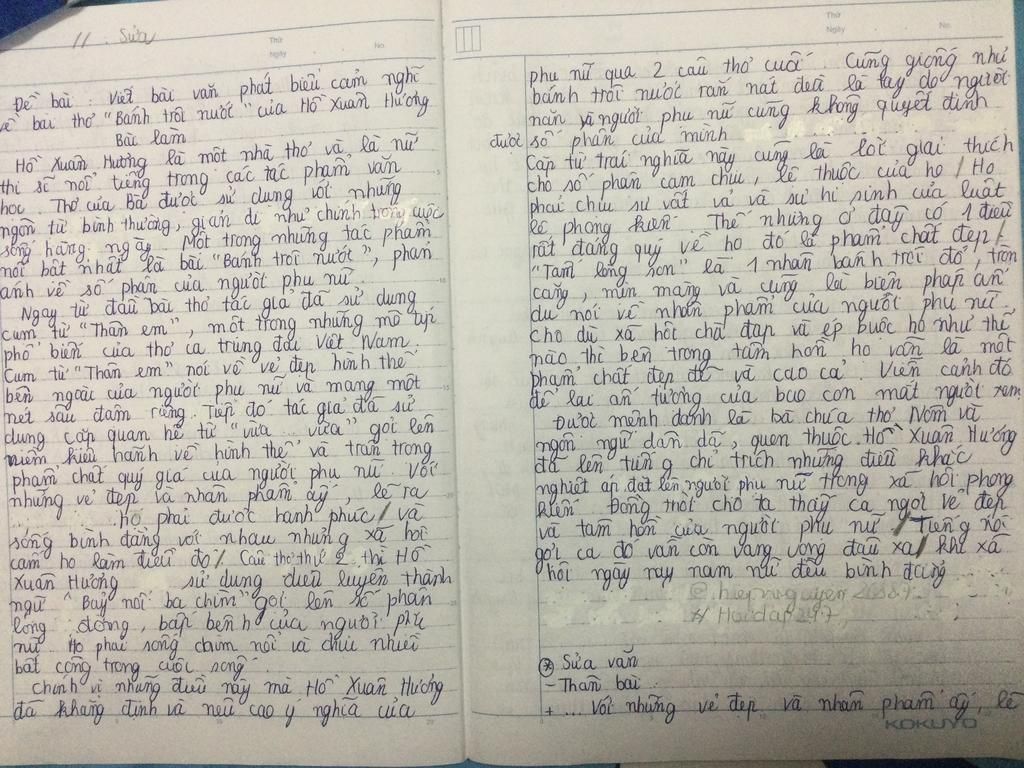 11. Sửa
Thứ
Ngày
No.
Đề bài: Viết bài văn phát biểu cảm nghĩ
về bài thơ "Bánh trôi nước" của Hồ Xuân Hương
Bài làm
Hồ Xuân Hương là một nhà thơ và là nữ
thi sĩ nổi tiếng trong các tác phẩm văn
học. Thơ của Bà được sử dụng với những
ngôn từ bình thường, giản dị như chính trong cuộc
sống hàng ngày. Một trong những tác phẩm
nổi bật nhất là bài "Bánh trôi nước", phản
ánh về số phận của người phụ nữ.
Ngay từ đầu bài thơ tác giả đã sử dụng
cụm từ "Thân em", một trong những mô típ
phổ biến của thơ ca trung đại Việt Nam.
Cụm từ "Thân em" nói về vẻ đẹp hình thể
bên ngoài của người phụ nữ và mang một
nét sâu đậm riêng. Tiếp đó tác giả đã sử
dụng cặp quan hệ từ "vừa ... vừa" gợi lên
niềm kiêu hãnh về hình thể và trân trọng
phẩm chất quý giá của người phụ nữ. Với
những vẻ đẹp và nhân phẩm ấy, lẽ ra
họ phải được hạnh phúc/ và
sống bình đẳng với nhau nhưng xã hội
cấm họ làm điều đó/ Câu thơ thứ 2 thì Hồ
Xuân Hương sử dụng điêu luyện thành
ngữ "Bảy nổi ba chìm" gợi lên số phận
lông đông, bấp bênh của người phụ
nữ. Họ phải sống chìm nổi và chịu nhiều
bất công trong cuộc sống.
Chính vì những điều này mà Hồ Xuân Hương
đã khẳng định và nêu cao ý nghĩa của
Thứ
Ngày
No.
phụ nữ qua 2 câu thơ cuối. Cũng giống như
bánh trôi nước rắn nát đều là tay do người
nặn và người phụ nữ cũng không quyết định
được số phận của mình
Cặp từ trái nghĩa này cũng là lời giải thích
cho số phận cam chịu, lệ thuộc của họ/ Họ
phải chịu sự vất vả và sự hi sinh của luật
lệ phong kiến. Thế nhưng ở đây có 1 điều
rất đáng quý về họ đó là phẩm chất đẹp/
"Tấm lòng son" là 1 nhân bánh trôi đỏ, tròn
căng, mịn màng và cũng là biện pháp ẩn
dụ nói về nhân phẩm của người phụ nữ
cho dù xã hội chà đạp và ép buộc họ như thế
nào thì bên trong tâm hồn họ vẫn là một
phẩm chất đẹp đẽ và cao cả. Viễn cảnh đó
để lại ấn tượng của bao con mắt người xem
Được mệnh danh là bà chúa thơ Nôm và
ngôn ngữ dân dã, quen thuộc. Hồ Xuân Hương
đã lên tiếng chỉ trích những điều khắc
nghiệt áp đặt lên người phụ nữ trong xã hội phong
kiến. Đồng thời cho ta thấy ca ngợi vẻ đẹp
và tâm hồn của người phụ nữ/ Tiếng nói
gợi ca đó vẫn còn vang vọng đâu xa/ khi xã
hội ngày nay nam nữ đều bình đẳng
# Hoidap247
* Sửa văn
- Thân bài:
+ ... Với những vẻ đẹp và nhân phẩm ấy, lẽ
KOKUYO